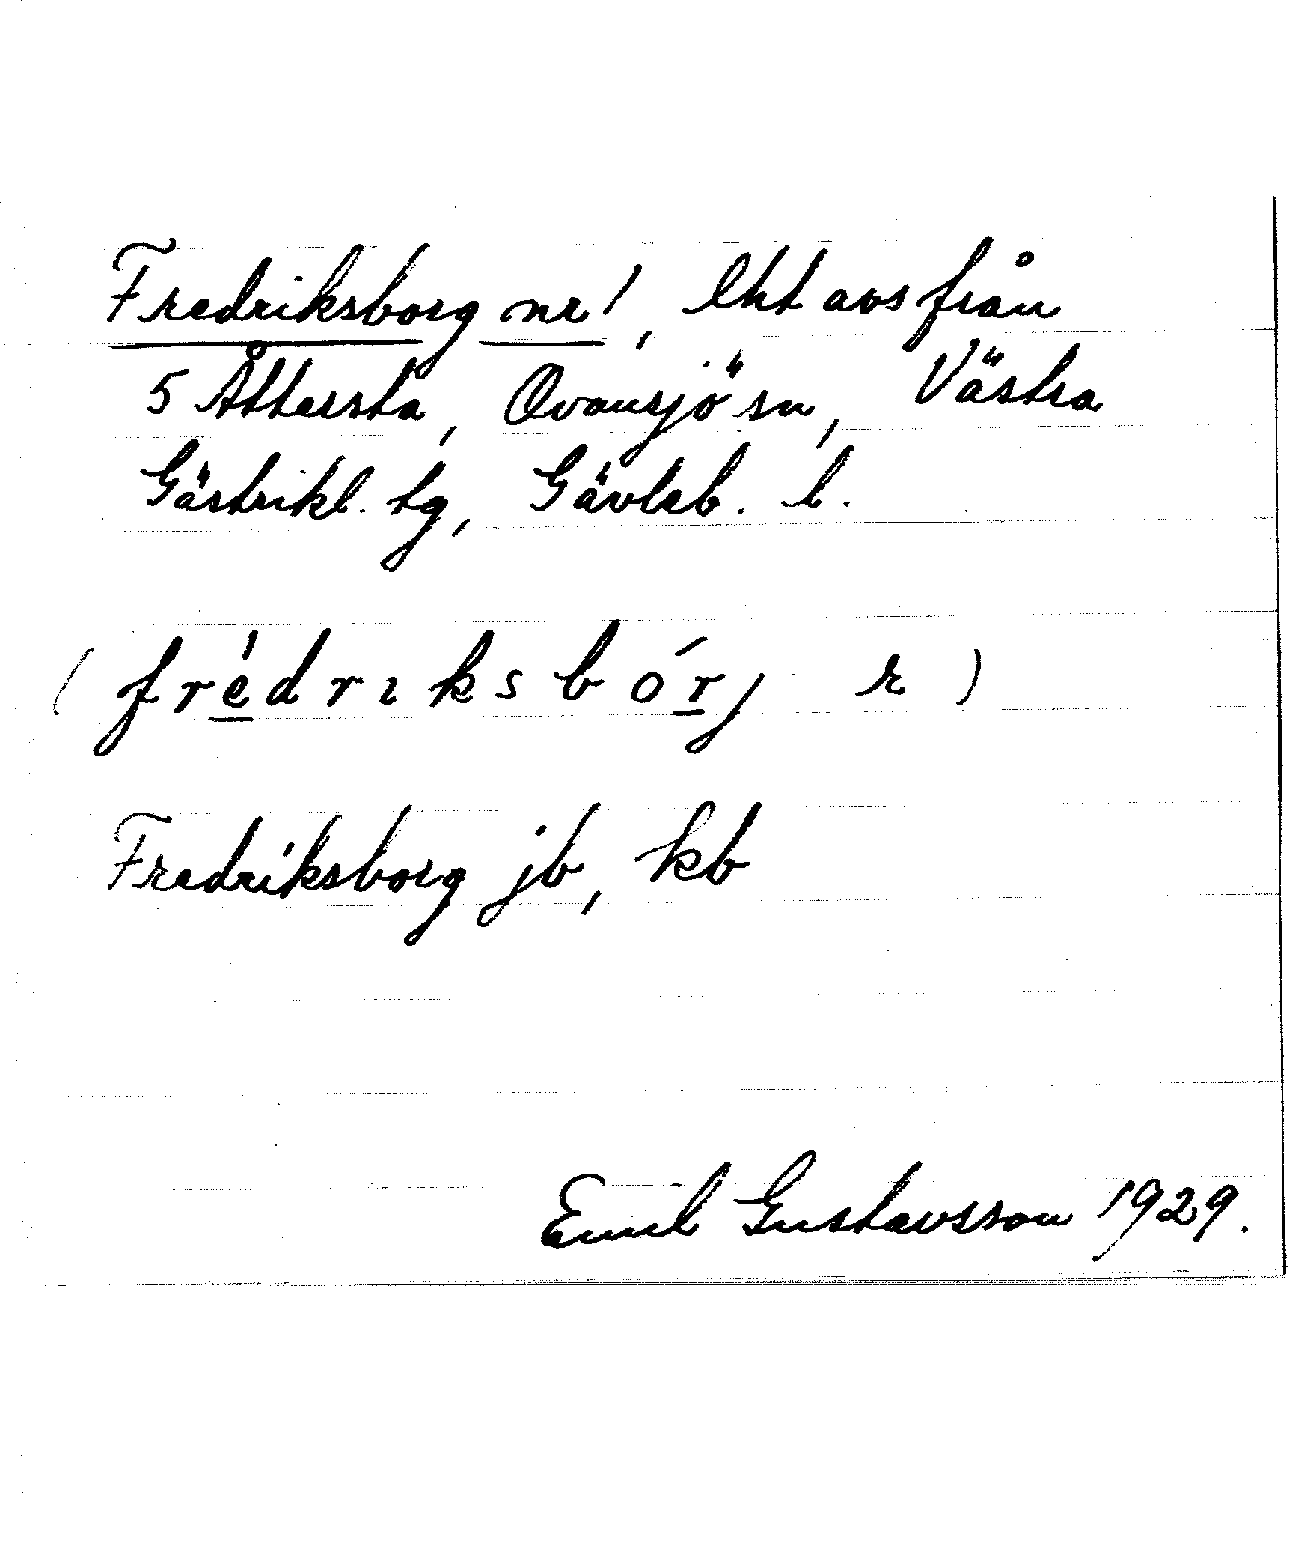 Fredriksborg nr 1, lht avs från
5 Åttersta, Ovansjö sn, Västra
Gästrikl. tg, Gävleb. l.
(frédrıksbórj r)
Fredriksborg jb, kb
Emil Gustavsson 1929.